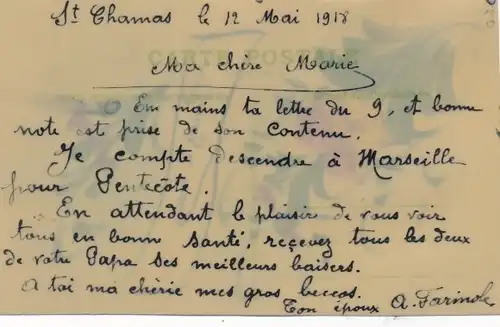 St Chamas le 12 Mai 1918
Ma chère Marie
En mains ta lettre du 9, et bonne
note est prise de son contenu.
Je compte descendre à Marseille
pour Pentecote.
En attendant le plaisir de vous voir
tous en bonne santé, reçevez tous les deux
de votre Papa ses meilleurs baisers.
A toi ma chérie mes gros beccos.
Ton époux A. Farinole
CARTE POSTALE